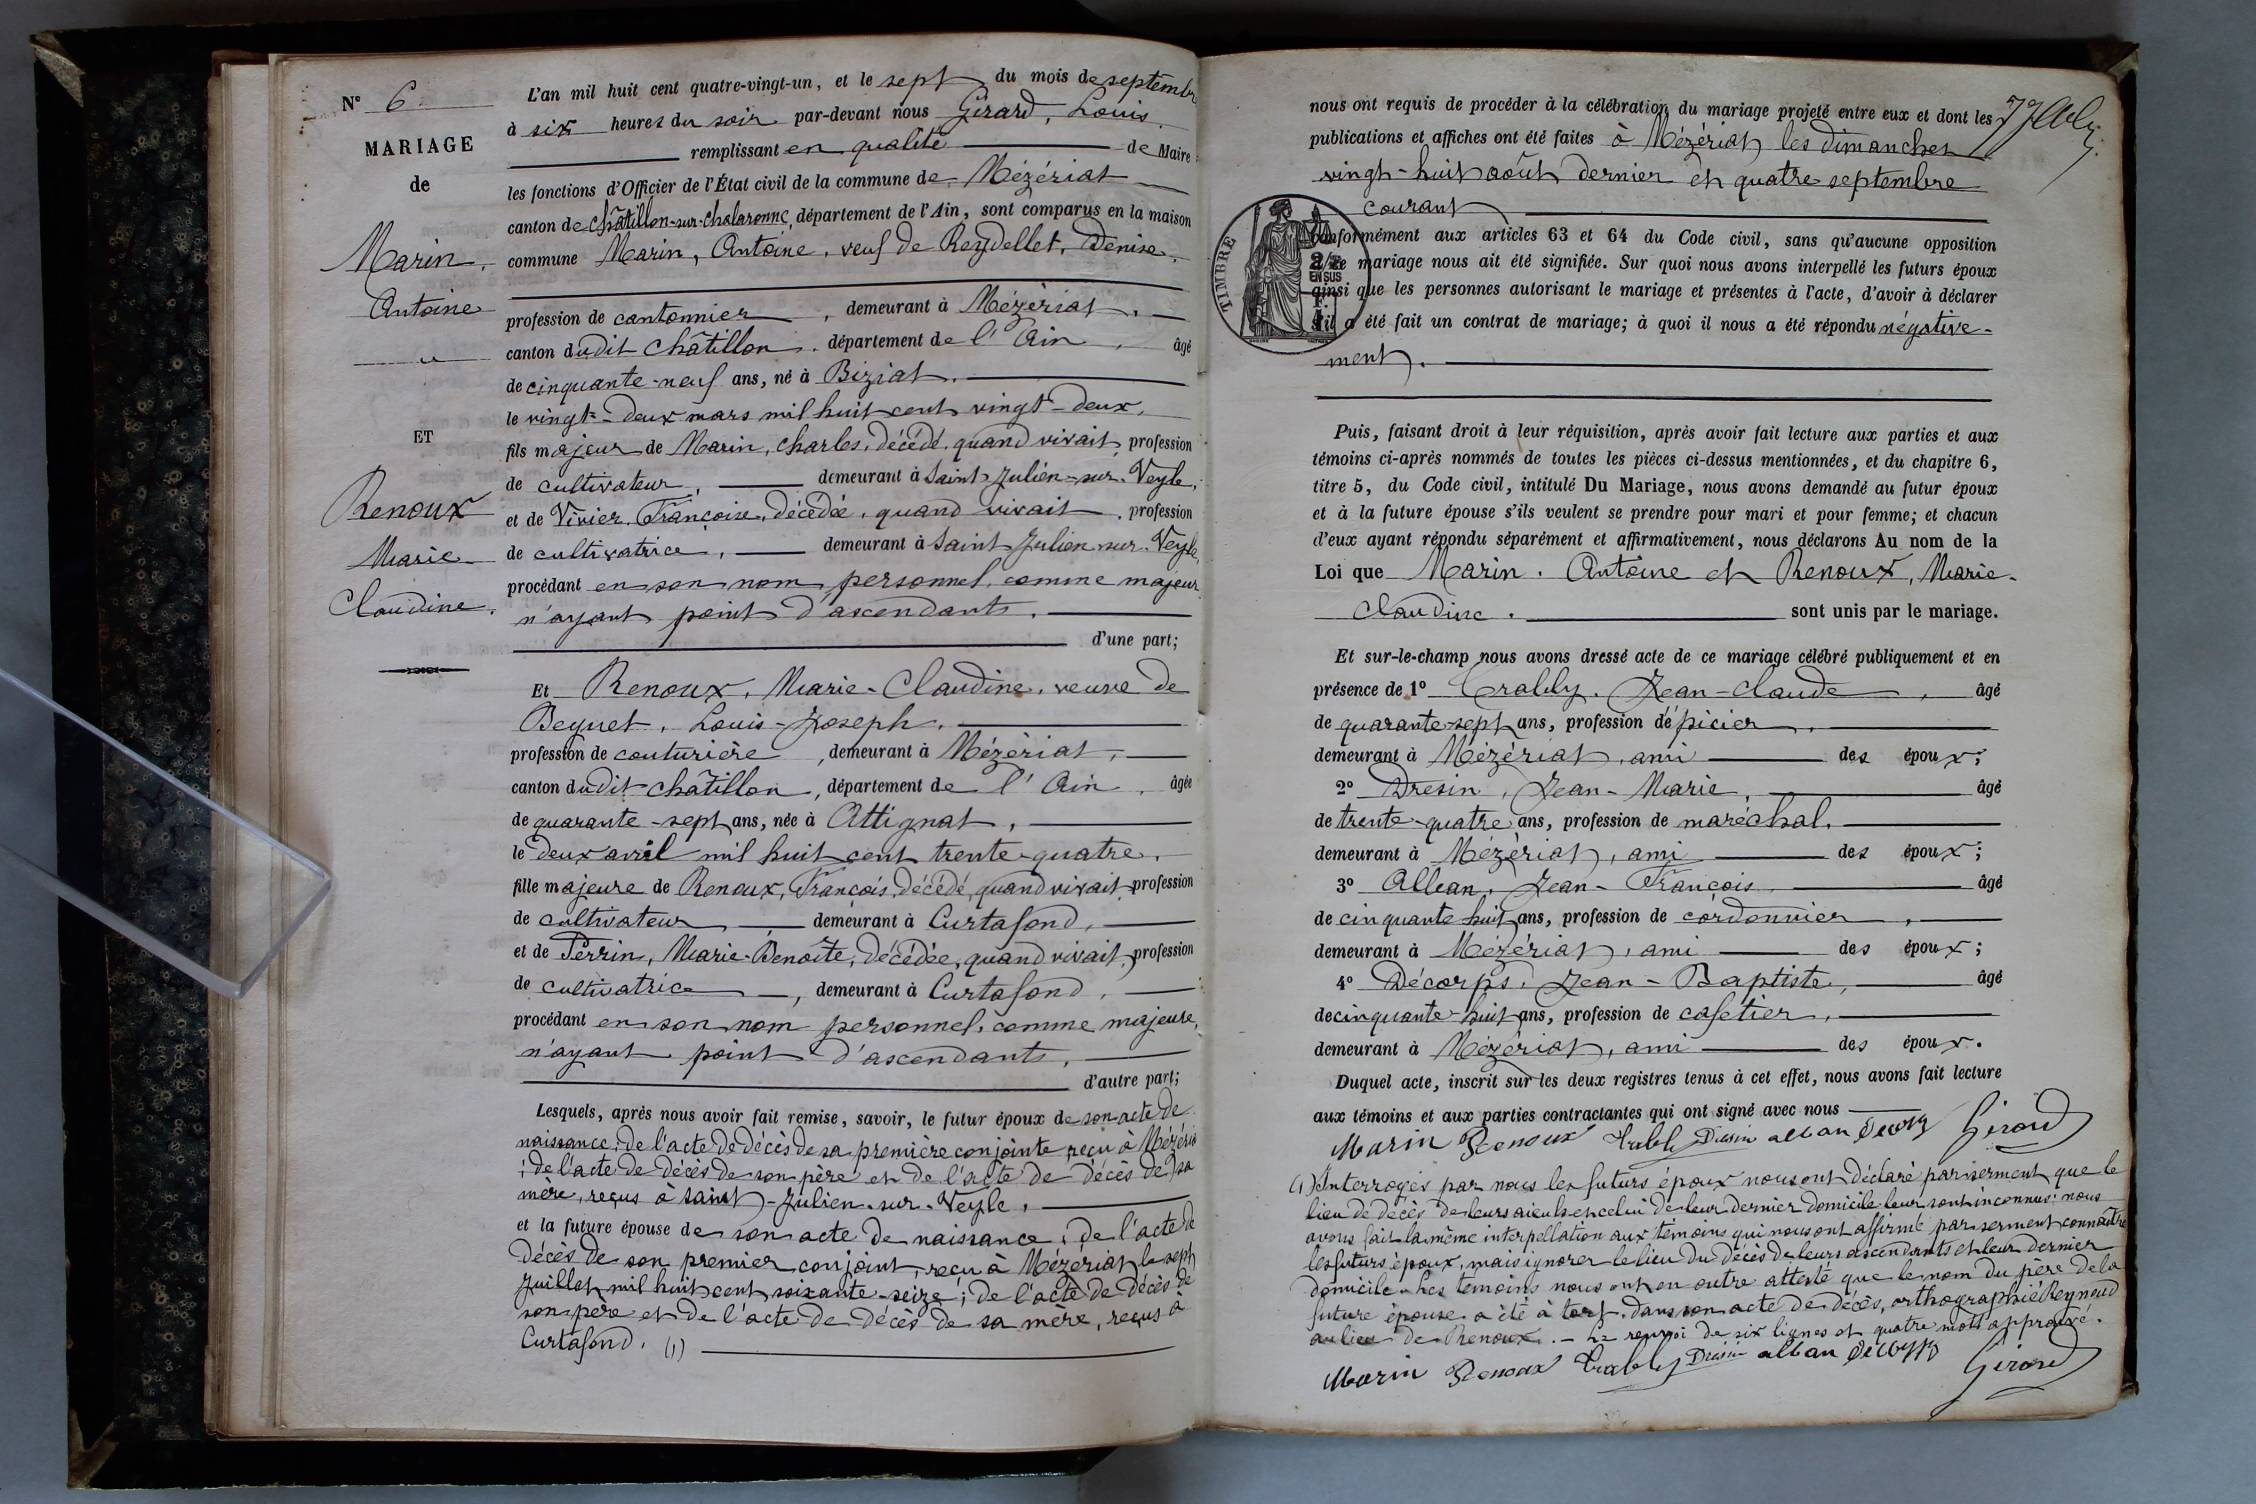 N° 6
MARIAGE
de
Marin,
Antoine
ET
Renoux
Marie-
Claudine.
L'an mil huit cent quatre-vingt-un, et le sept du mois de septembre
à six heures du soir par-devant nous Girard, Louis.
remplissant en qualité de Maire
les fonctions d'Officier de l'État civil de la commune de Mézériat
canton de Châtillon-sur-Chalaronne, département de l'Ain, sont comparus en la maison
commune Marin, Antoine, veuf de Reydellet, Denise,
profession de cantonnier, demeurant à Mézériat,
canton dudit Châtillon, département de l'Ain, âgé
de cinquante-neuf ans, né à Biziat,
le vingt-deux mars mil huit cent vingt-deux,
fils majeur de Marin, Charles, décédé, quand vivait, profession
de cultivateur, demeurant à Saint-Julien-sur-Veyle,
et de Vivier, Françoise, décédée, quand vivait, profession
de cultivatrice, demeurant à Saint-Julien-sur-Veyle,
procédant en son nom personnel, comme majeur
n'ayant point d'ascendants,
d'une part;
Et Renoux, Marie-Claudine, veuve de
Beguet, Louis-Joseph,
profession de couturière, demeurant à Mézériat,
canton dudit Châtillon, département de l'Ain, âgée
de quarante-sept ans, née à Attignat,
le deux avril mil huit cent trente-quatre,
fille majeure de Renoux, François, décédé, quand vivait, profession
de cultivateur, demeurant à Curtafond,
et de Perrin, Marie-Benoîte, décédée, quand vivait, profession
de cultivatrice, demeurant à Curtafond,
procédant en son nom personnel, comme majeure,
n'ayant point d'ascendants,
d'autre part;
Lesquels, après nous avoir fait remise, savoir, le futur époux de son acte de
naissance; de l'acte de décès de sa première conjointe, reçu à Mézériat
; de l'acte de décès de son père et de l'acte de décès de sa
mère, reçus à Saint-Julien-sur-Veyle,
et la future épouse de son acte de naissance; de l'acte de
décès de son premier conjoint, reçu à Mézériat le sept
Juillet mil huit cent soixante-seize; de l'acte de décès de
son père et de l'acte de décès de sa mère, reçus à
Curtafond. (1)
nous ont requis de procéder à la célébration du mariage projeté entre eux et dont les
publications et affiches ont été faites à Mézériat les dimanches
vingt-huit août dernier et quatre septembre
courant
TIMBRE
2/10 EN SUS
conformément aux articles 63 et 64 du Code civil, sans qu'aucune opposition
à ce mariage nous ait été signifiée. Sur quoi nous avons interpellé les futurs époux
ainsi que les personnes autorisant le mariage et présentes à l'acte, d'avoir à déclarer
s'il a été fait un contrat de mariage; à quoi il nous a été répondu négative-
ment.
Puis, faisant droit à leur réquisition, après avoir fait lecture aux parties et aux
témoins ci-après nommés de toutes les pièces ci-dessus mentionnées, et du chapitre 6,
titre 5, du Code civil, intitulé Du Mariage, nous avons demandé au futur époux
et à la future épouse s'ils veulent se prendre pour mari et pour femme; et chacun
d'eux ayant répondu séparément et affirmativement, nous déclarons Au nom de la
Loi que Marin, Antoine et Renoux, Marie-
Claudine. sont unis par le mariage.
Et sur-le-champ nous avons dressé acte de ce mariage célébré publiquement et en
présence de 1° Trably, Jean-Claude, âgé
de quarante-sept ans, profession d'épicier,
demeurant à Mézériat, ami des époux;
2° Dresin, Jean-Marie, âgé
de trente-quatre ans, profession de maréchal,
demeurant à Mézériat, ami des époux;
3° Alban, Jean-François âgé
de cinquante-huit ans, profession de cordonnier,
demeurant à Mézériat, ami des époux;
4° Décorps, Jean-Baptiste, âgé
de cinquante-huit ans, profession de cafetier,
demeurant à Mézériat, ami des époux.
Duquel acte, inscrit sur les deux registres tenus à cet effet, nous avons fait lecture
aux témoins et aux parties contractantes qui ont signé avec nous
Marin Renoux Trably Dresin alban Girard
(1) Interrogés par nous les futurs époux nous ont déclaré par serment que le
lieu de décès de leurs aïeuls et celui de leur dernier domicile leur sont inconnus: nous
avons fait la même interpellation aux témoins qui nous ont affirmé par serment connaître
les futurs époux, mais ignorer le lieu du décès de leurs ascendants et leur dernier
domicile. Les témoins nous ont en outre attesté que le nom du père de la
future épouse a été à tort, dans son acte de décès, orthographié Reynoud
au lieu de Renoux. - Le renvoi de six lignes et quatre mots approuvé.
Marin Renoux Trably Dresin alban Girard